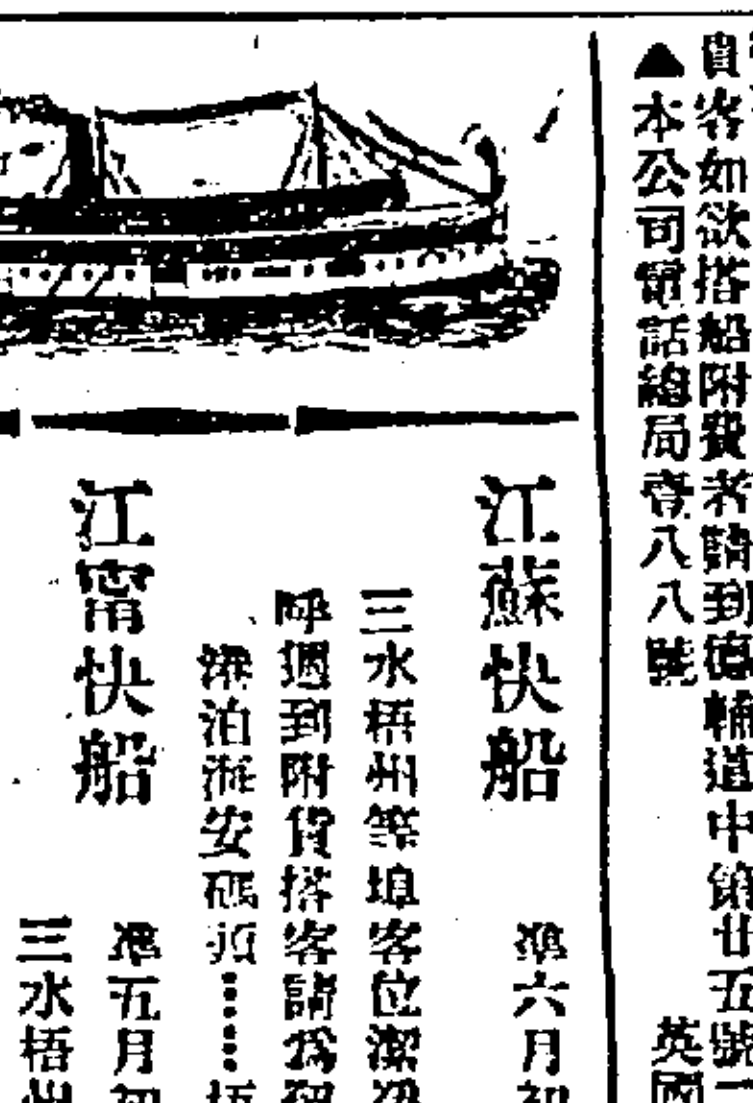 貴客如欲搭船附貨者請到德輔道中第廿五號
▲本公司電話總局壹八八號
英國
江蘇快船
準六月初
三水梧州等埠客位潔
呼週到附貨搭客請為留
灣泊海安碼頭⋯⋯
江甯快船
準五月初
三水梧州